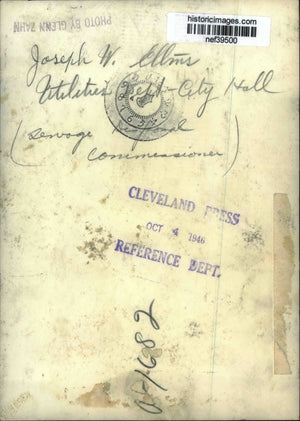 historicimages.com
nef39500
PHOTO BY GLENN ZAHN
Joseph W. Ellms
Utilities Dept - City Hall
(Sewage
Commissioner)
CLEVELAND PRESS
OCT 4 1946
REFERENCE DEPT.